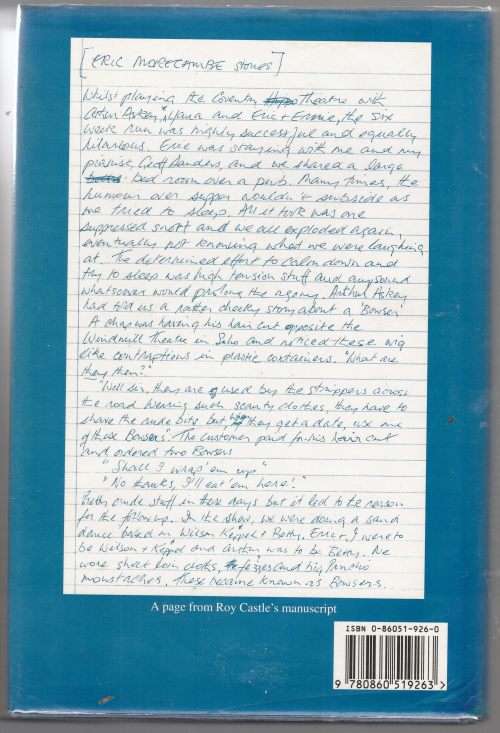 [ERIC MORECAMBE STORIES]
Whilst playing the Coventry Theatre with
Arthur Askey, Yana and Eric + Ernie, the six
week run was highly successful and equally
hilarious. Eric was staying with me and my
pianist, Geoff Sanders, and we shared a large
bed room over a pub. Many times, the
humour over supper wouldn't subside as
we tried to sleep. All it took was one
suppressed snort and we all exploded again,
eventually not knowing what we were laughing
at. The determined effort to calm down and
try to sleep was high tension stuff and any sound
whatsoever would prolong the agony. Arthur Askey
had told us a rather cheeky story about a 'Bowser'
A chap was having his hair cut opposite the
Windmill Theatre in Soho and noticed these wig
like contraptions in plastic containers. "What are
they then?"
"Well sir, they are used by the strippers across
the road. Wearing such scanty clothes, they have to
shave the rude bits but if they get a date, use one
of these Bowsers". The customer paid for his hair cut
and ordered two Bowsers
"Shall I wrap 'em up"
"No thanks, I'll eat 'em here!"
Pretty crude stuff in those days but it led to the reason
for the following. In the show, we were doing a sand
dance based on Wilson Keppel + Betty. Eric + I were to
be Wilson + Keppel and Arthur was to be Betty. We
wore short loin cloths, fezzes and big Pancho
moustaches. These became known as Bowsers.
A page from Roy Castle's manuscript
ISBN 0-86051-926-0
9 780860 519263 >